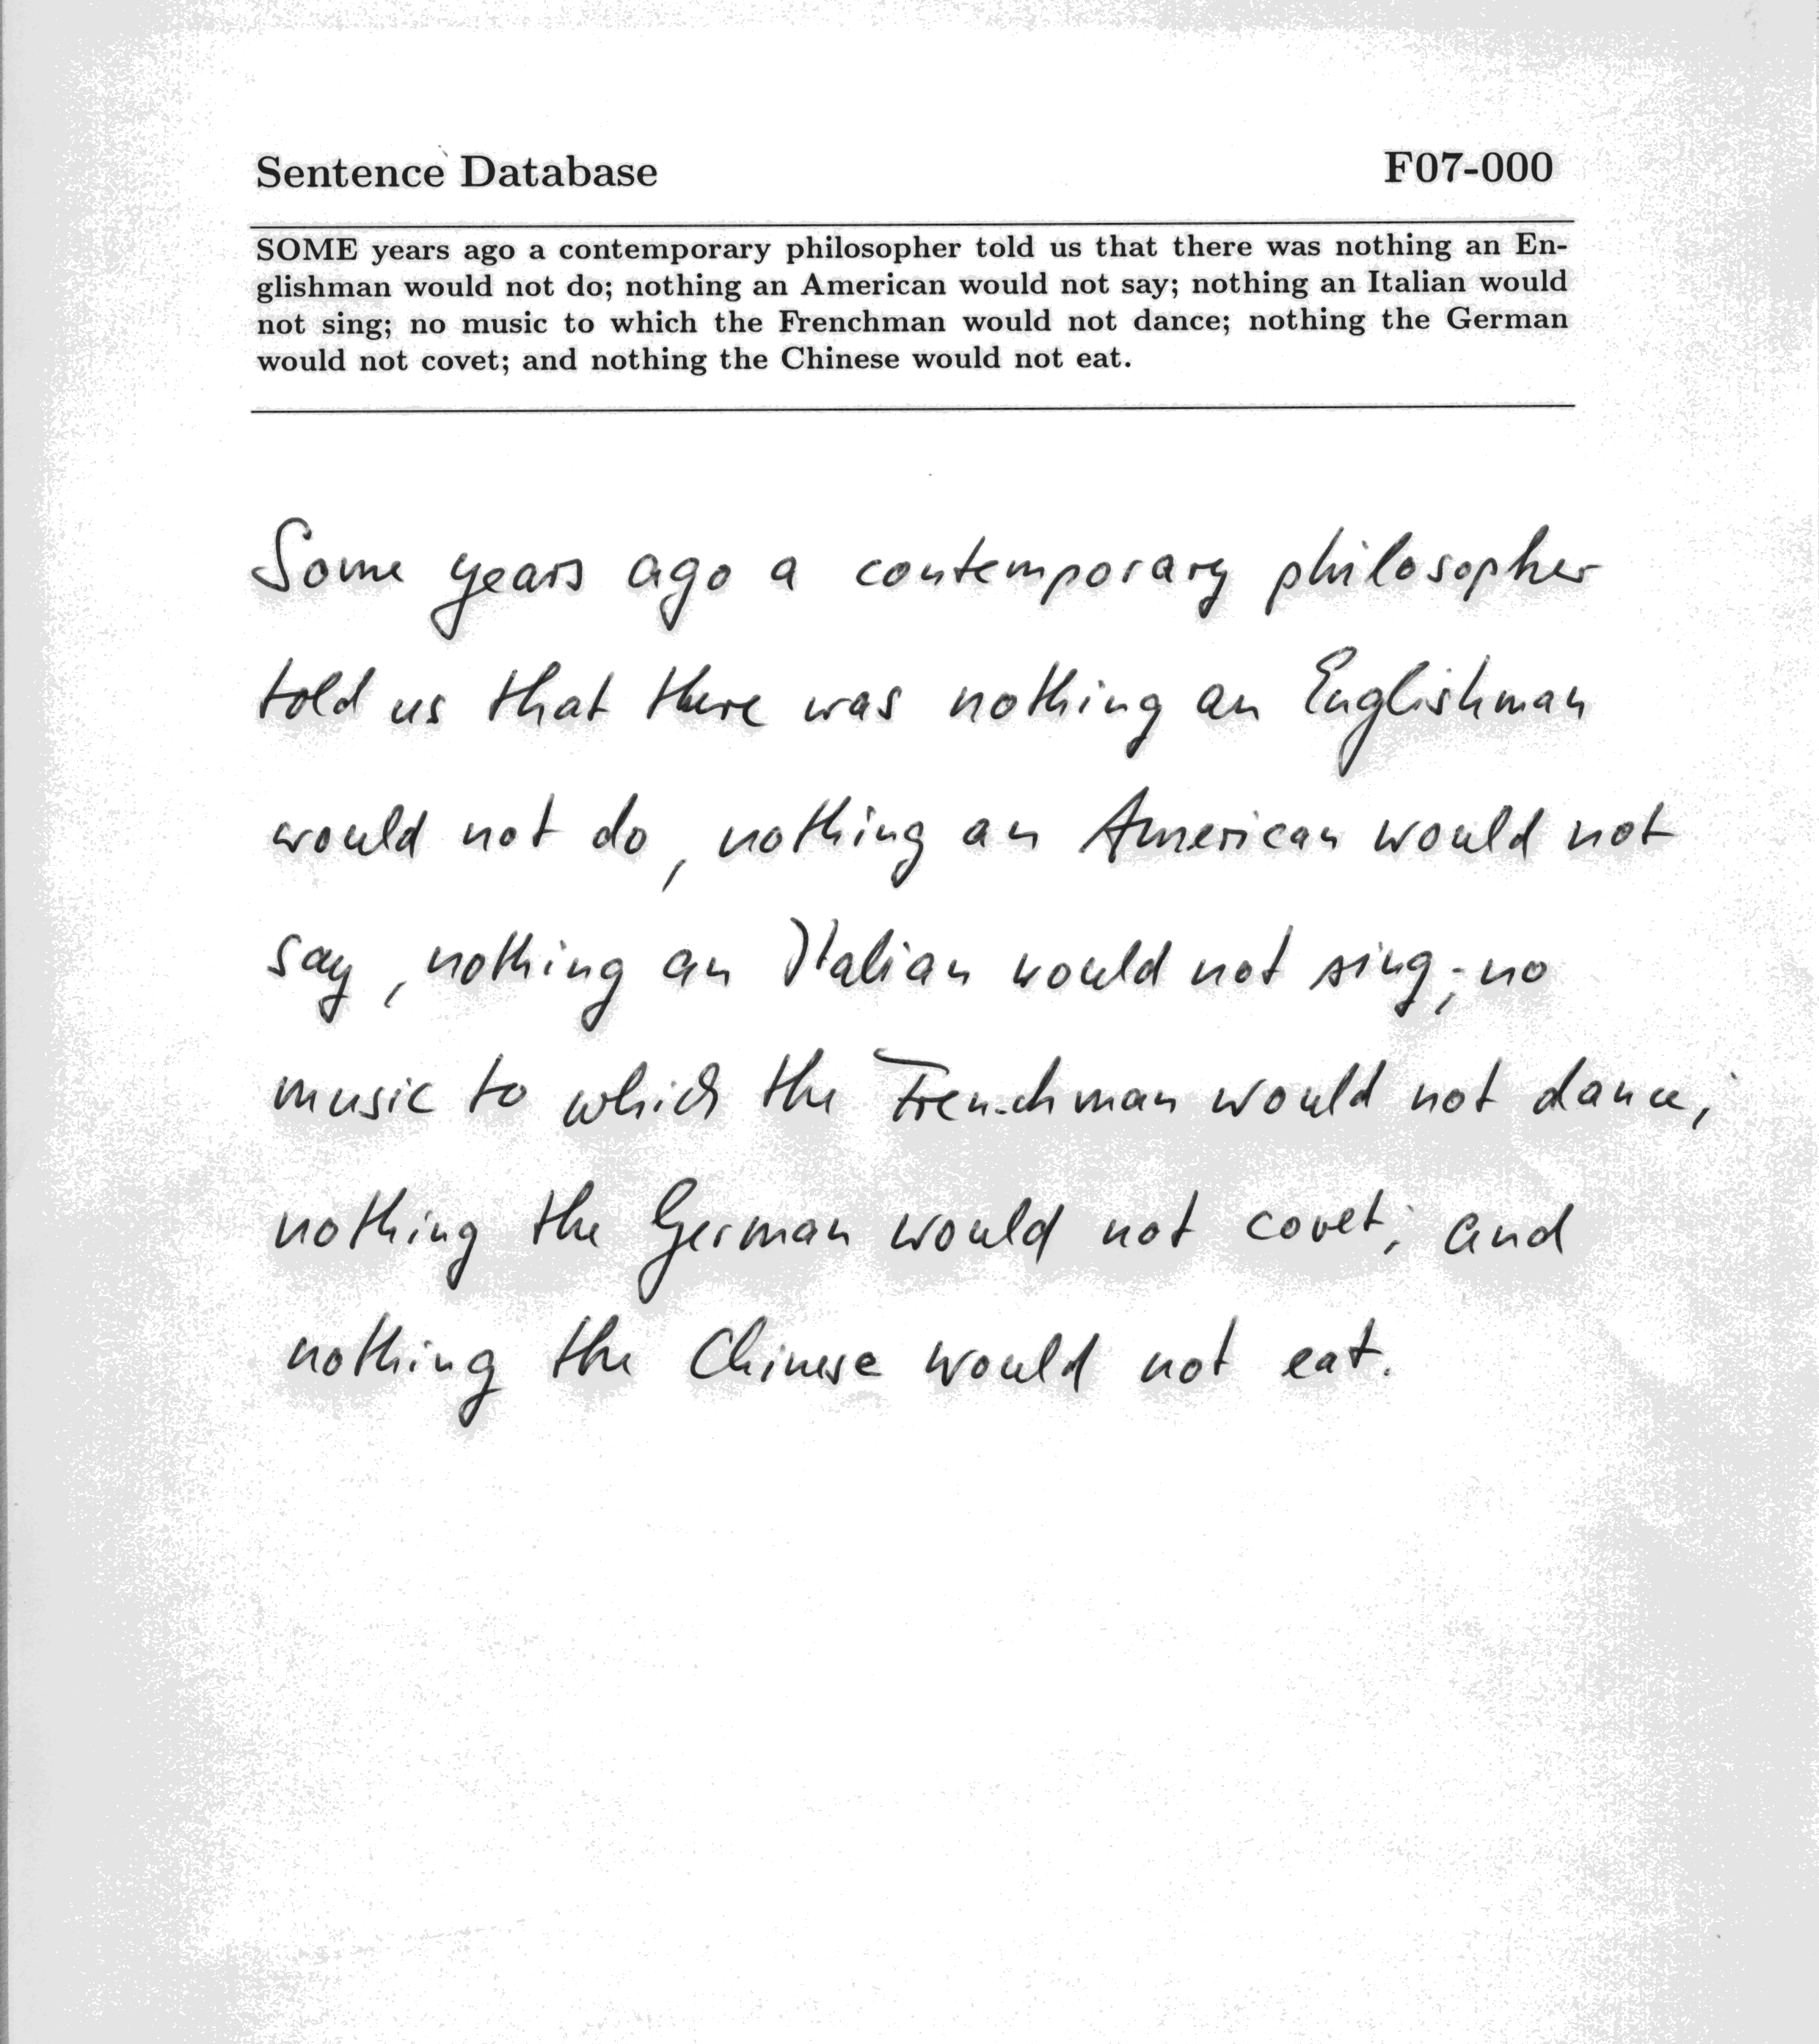 Sentence Database F07-000
SOME years ago a contemporary philosopher told us that there was nothing an En-
glishman would not do; nothing an American would not say; nothing an Italian would
not sing; no music to which the Frenchman would not dance; nothing the German
would not covet; and nothing the Chinese would not eat.
Some years ago a contemporary philosopher
told us that there was nothing an Englishman
would not do, nothing an American would not
say, nothing an Italian would not sing; no
music to which the Frenchman would not dance;
nothing the German would not covet; and
nothing the Chinese would not eat.